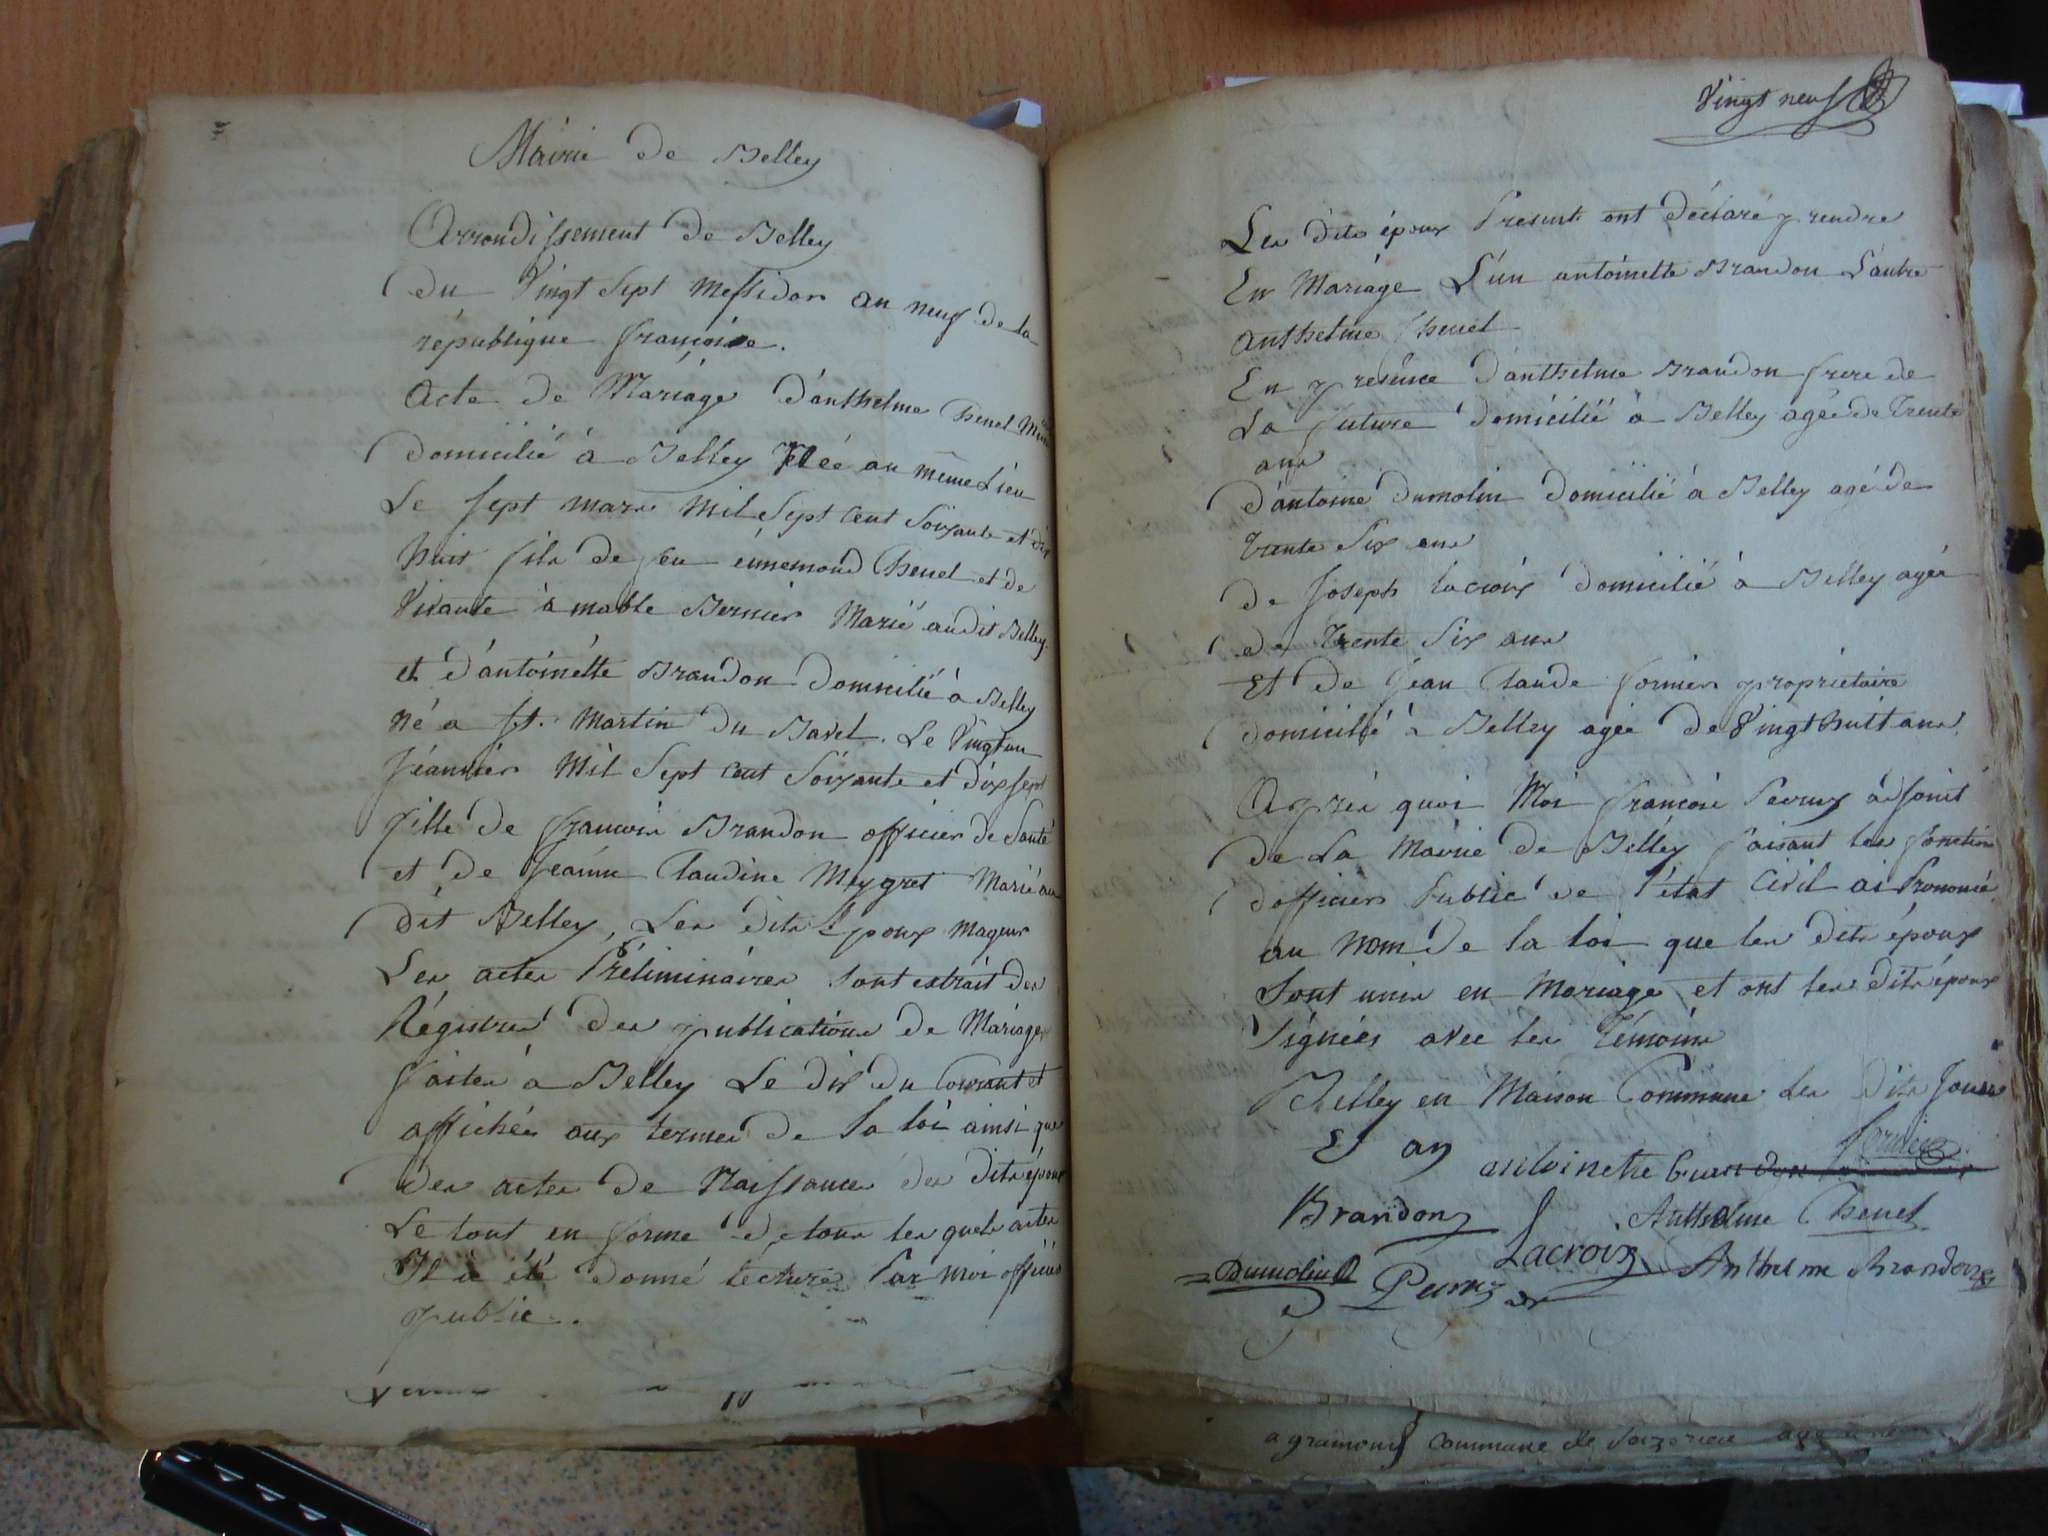 Mairie de Belley
Arrondissement de Belley
du Vingt Sept Messidor an neuf de la
république françoise.
Acte de Mariage d'anthelme Thenet
domicilié à Belley Née au même Lieu
Le sept mars mil sept cent soixante et dix
huit fils de feu ennemond Thenet et de
Vivante amable Bernier Marié audit Belley
et d'antoinette Brandon domicilié à Belley
né a St. Martin du Bavel. Le Vingt un
Jeanvier Mil Sept cent Soixante et dix sept
fille de francois Brandon officier de Santé
et de Jeanne Claudine Meygret Marié au
dit Belley, Les dits Epoux mageur
Les actes Préliminaires sont extrait des
Régistres des publications de Mariage
faites à Belley Le dix du Courant et
affichés aux termes de la loi ainsi que
des actes de Naissances des dits époux
Le tout en forme de tous les quels actes
Il a été donné lecture Par moi officier
public.
Vingt neuf
Les dits époux Present ont déclaré prendre
En Mariage L'un antoinette Brandon L'autre
anthelme Thenet
En presence d'anthelme Brandon frere de
La future domicilié à Belley agée de Trente
ans
d'antoine dumolin domicilié à Belley agé de
Trente Six ans
de Joseph lacroix domicilié à Belley agée
de Trente Six ans
Et de Jean Claude fornier propriétaire
domicilié à Belley agée de Vingt huit ans.
Après quoi Moi françois adjoint
de La Mairie de Belley faisant les fonction
d'officier Public de l'état Civil ai Prononcé
au nom de la loi que les dits époux
Sont unis en Mariage et ont les dits époux
Signées avec les Témoins
Belley en Maison Commune Les dits Jours
Et an
antoinette brandon
Brandon Anthelme Thenet
Lacroix
Dumolin Anthelme Brandon
commune de